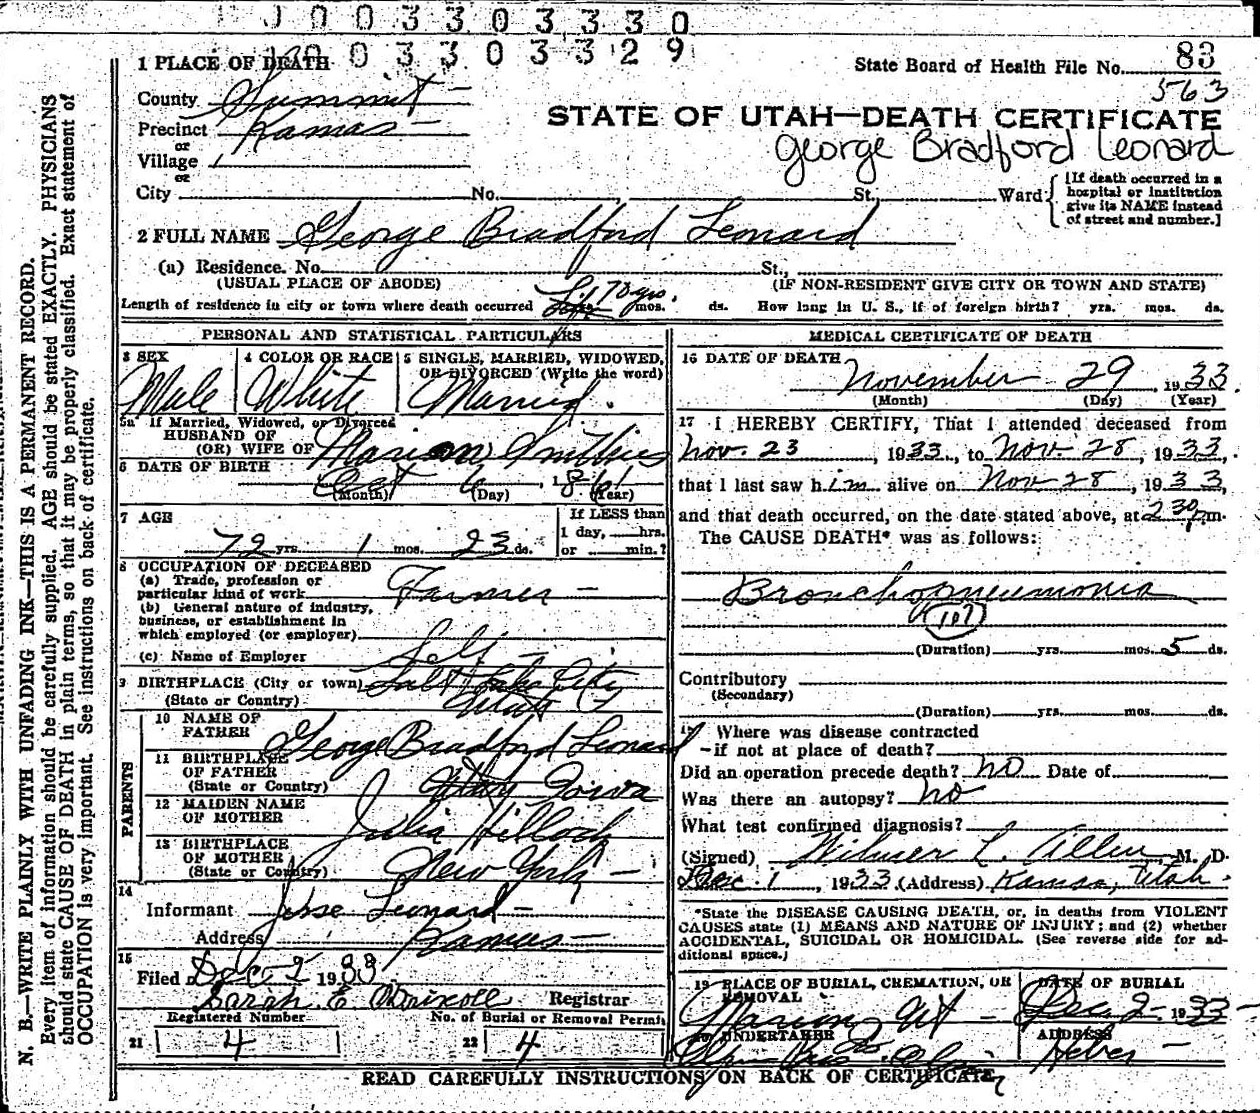 0 0 3 3 0 3 3 3 0
0 0 3 3 0 3 3 2 9
1 PLACE OF DEATH
State Board of Health File No. 83
563
County Summit
STATE OF UTAH—DEATH CERTIFICATE
Precinct Kamas
or
George Bradford Leonard
Village
or
City No. St., Ward
[If death occurred in a
hospital or institution
give its NAME instead
of street and number.]
2 FULL NAME George Bradford Leonard
(a) Residence. No. St.,
(USUAL PLACE OF ABODE) (IF NON-RESIDENT GIVE CITY OR TOWN AND STATE)
Length of residence in city or town where death occurred Life 70 yrs. mos. ds. How long in U. S., if of foreign birth? yrs. mos. ds.
PERSONAL AND STATISTICAL PARTICULARS
3 SEX 4 COLOR OR RACE 5 SINGLE, MARRIED, WIDOWED,
OR DIVORCED (Write the word)
Male White Married.
5a If Married, Widowed, or Divorced
HUSBAND OF
(OR) WIFE OF Marion Smithies
6 DATE OF BIRTH
Oct 6, 1861
(Month) (Day) (Year)
7 AGE
If LESS than
1 day, hrs.
72 yrs. 1 mos. 23 ds. or min.?
8 OCCUPATION OF DECEASED
(a) Trade, profession or
particular kind of work Farmer
(b) General nature of industry,
business, or establishment in
which employed (or employer)
(c) Name of Employer Self
9 BIRTHPLACE (City or town) Salt Lake City
(State or Country) Utah
PARENTS
10 NAME OF
FATHER George Bradford Leonard
11 BIRTHPLACE
OF FATHER
(State or Country) Iowa
12 MAIDEN NAME
OF MOTHER Julia
13 BIRTHPLACE
OF MOTHER
(State or Country) New York
14
Informant Jesse Leonard
Address Kamas
15
Filed Dec 2 1933
Sarah E Driscoll Registrar
Registered Number No. of Burial or Removal Permit
21 4 22 4
MEDICAL CERTIFICATE OF DEATH
16 DATE OF DEATH
November 29 1933
(Month) (Day) (Year)
17 I HEREBY CERTIFY, That I attended deceased from
Nov. 23, 1933, to Nov 28, 1933,
that I last saw him alive on Nov 28, 1933,
and that death occurred, on the date stated above, at 2 30 pm.
The CAUSE DEATH* was as follows:
Bronchopneumonia
107
(Duration) yrs. mos. 5 ds.
Contributory
(Secondary)
(Duration) yrs. mos. ds.
Where was disease contracted
if not at place of death?
Did an operation precede death? no Date of
Was there an autopsy? no
What test confirmed diagnosis?
(Signed) Wilmer L. Allen, M. D.
Dec. 1, 1933 (Address) Kamas, Utah.
*State the DISEASE CAUSING DEATH, or, in deaths from VIOLENT
CAUSES state (1) MEANS AND NATURE OF INJURY; and (2) whether
ACCIDENTAL, SUICIDAL OR HOMICIDAL. (See reverse side for ad-
ditional space.)
19 PLACE OF BURIAL, CREMATION, OR
REMOVAL
DATE OF BURIAL
Marion Ut Dec. 2 - 1933
20 UNDERTAKER ADDRESS
Heber
READ CAREFULLY INSTRUCTIONS ON BACK OF CERTIFICATE
N. B.—WRITE PLAINLY WITH UNFADING INK—THIS IS A PERMANENT RECORD.
Every item of information should be carefully supplied. AGE should be stated EXACTLY. PHYSICIANS
should state CAUSE OF DEATH in plain terms, so that it may be properly classified. Exact statement of
OCCUPATION is very important. See instructions on back of certificate.